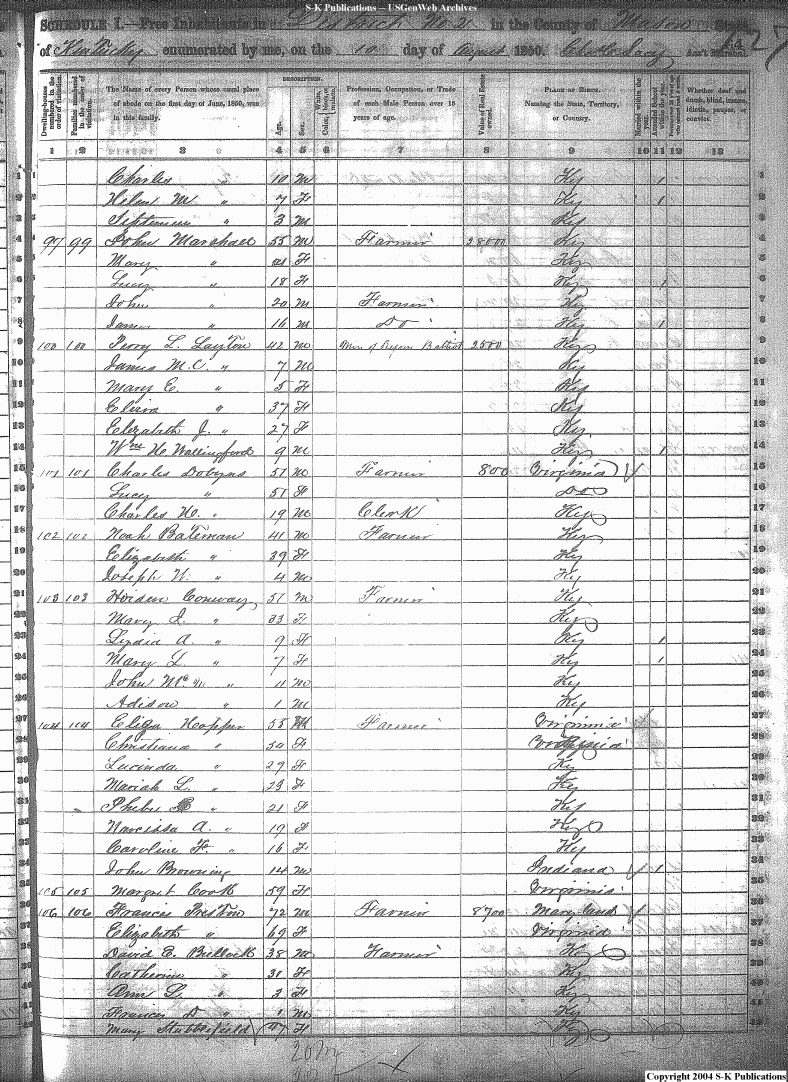 S-K Publications -- USGenWeb Archives
SCHEDULE I.—Free Inhabitants in District No. 2 in the County of Mason State
of Kentucky enumerated by me, on the 10 day of August 1850. Ass't Marshal.
Dwelling-houses numbered in the order of visitation.
Families numbered in the order of visitation.
The Name of every Person whose usual place of abode on the first day of June, 1850, was in this family.
DESCRIPTION.
Age.
Sex.
Color, White, black, or mulatto.
Profession, Occupation, or Trade of each Male Person over 15 years of age.
Value of Real Estate owned.
PLACE OF BIRTH. Naming the State, Territory, or Country.
Married within the year.
Attended School within the year.
Whether deaf and dumb, blind, insane, idiotic, pauper, or convict.
1 2 3 4 5 6 7 8 9 10 11 12 13
1 Charles " 10 M Ky 1 1
2 Helen M " 7 F Ky 1 2
3 Septimus " 3 M Ky 3
4 99 99 John Marshall 55 M Farmer 28000 Ky 4
5 Mary " F Ky 5
6 Lucy " 18 F Ky 1 6
7 John " 20 M Farmer Ky 7
8 James " 16 M Do Ky 1 8
9 100 100 Perry L. Layton 42 M 2500 Ky 9
10 James M.C. " 7 M Ky 10
11 Mary E. " 5 F Ky 11
12 " 37 F Ky 12
13 Elizabeth J. " 27 F Ky 13
14 Wm H Wallingford 9 M Ky 1 14
15 101 101 Charles Dobyns 51 M Farmer 800 Virginia 15
16 Lucy " 51 F Do 16
17 Charles W. " 19 M Clerk Ky 17
18 102 102 Noah Bateman 41 M Farmer Ky 18
19 Elizabeth " 39 F Ky 19
20 Joseph W. " 4 M Ky 20
21 103 103 Conway 51 M Farmer Ky 21
22 Mary J. " 33 F Ky 22
23 Lydia A. " 9 F Ky 1 23
24 Mary L. " 7 F Ky 1 24
25 John " 11 M Ky 25
26 Adison " 1 M Ky 26
27 104 104 Hopper 55 M Farmer Virginia 27
28 Christiana " 50 F Virginia 28
29 Lucinda " 29 F Ky 29
30 Mariah L. " 23 F Ky 30
31 Phebe " 21 F Ky 31
32 Narcissa A. " 19 F Ky 32
33 Caroline F. " 16 F Ky 33
34 John Browning 14 M Indiana 1 34
35 105 105 Margret Cook 59 F Virginia 35
36 106 106 Frances Preston 72 M Farmer 8700 Maryland 36
37 Elizabeth " 69 F Virginia 37
38 David E. Bullock 38 M Farmer Ky 38
39 Catherine " 31 F Ky 39
40 Ann L. " 2 F Ky 40
41 Frances D " 1 M Ky 41
42 Mary Stubblefield 47 F Ky 42
20 M
Copyright 2004 S-K Publications